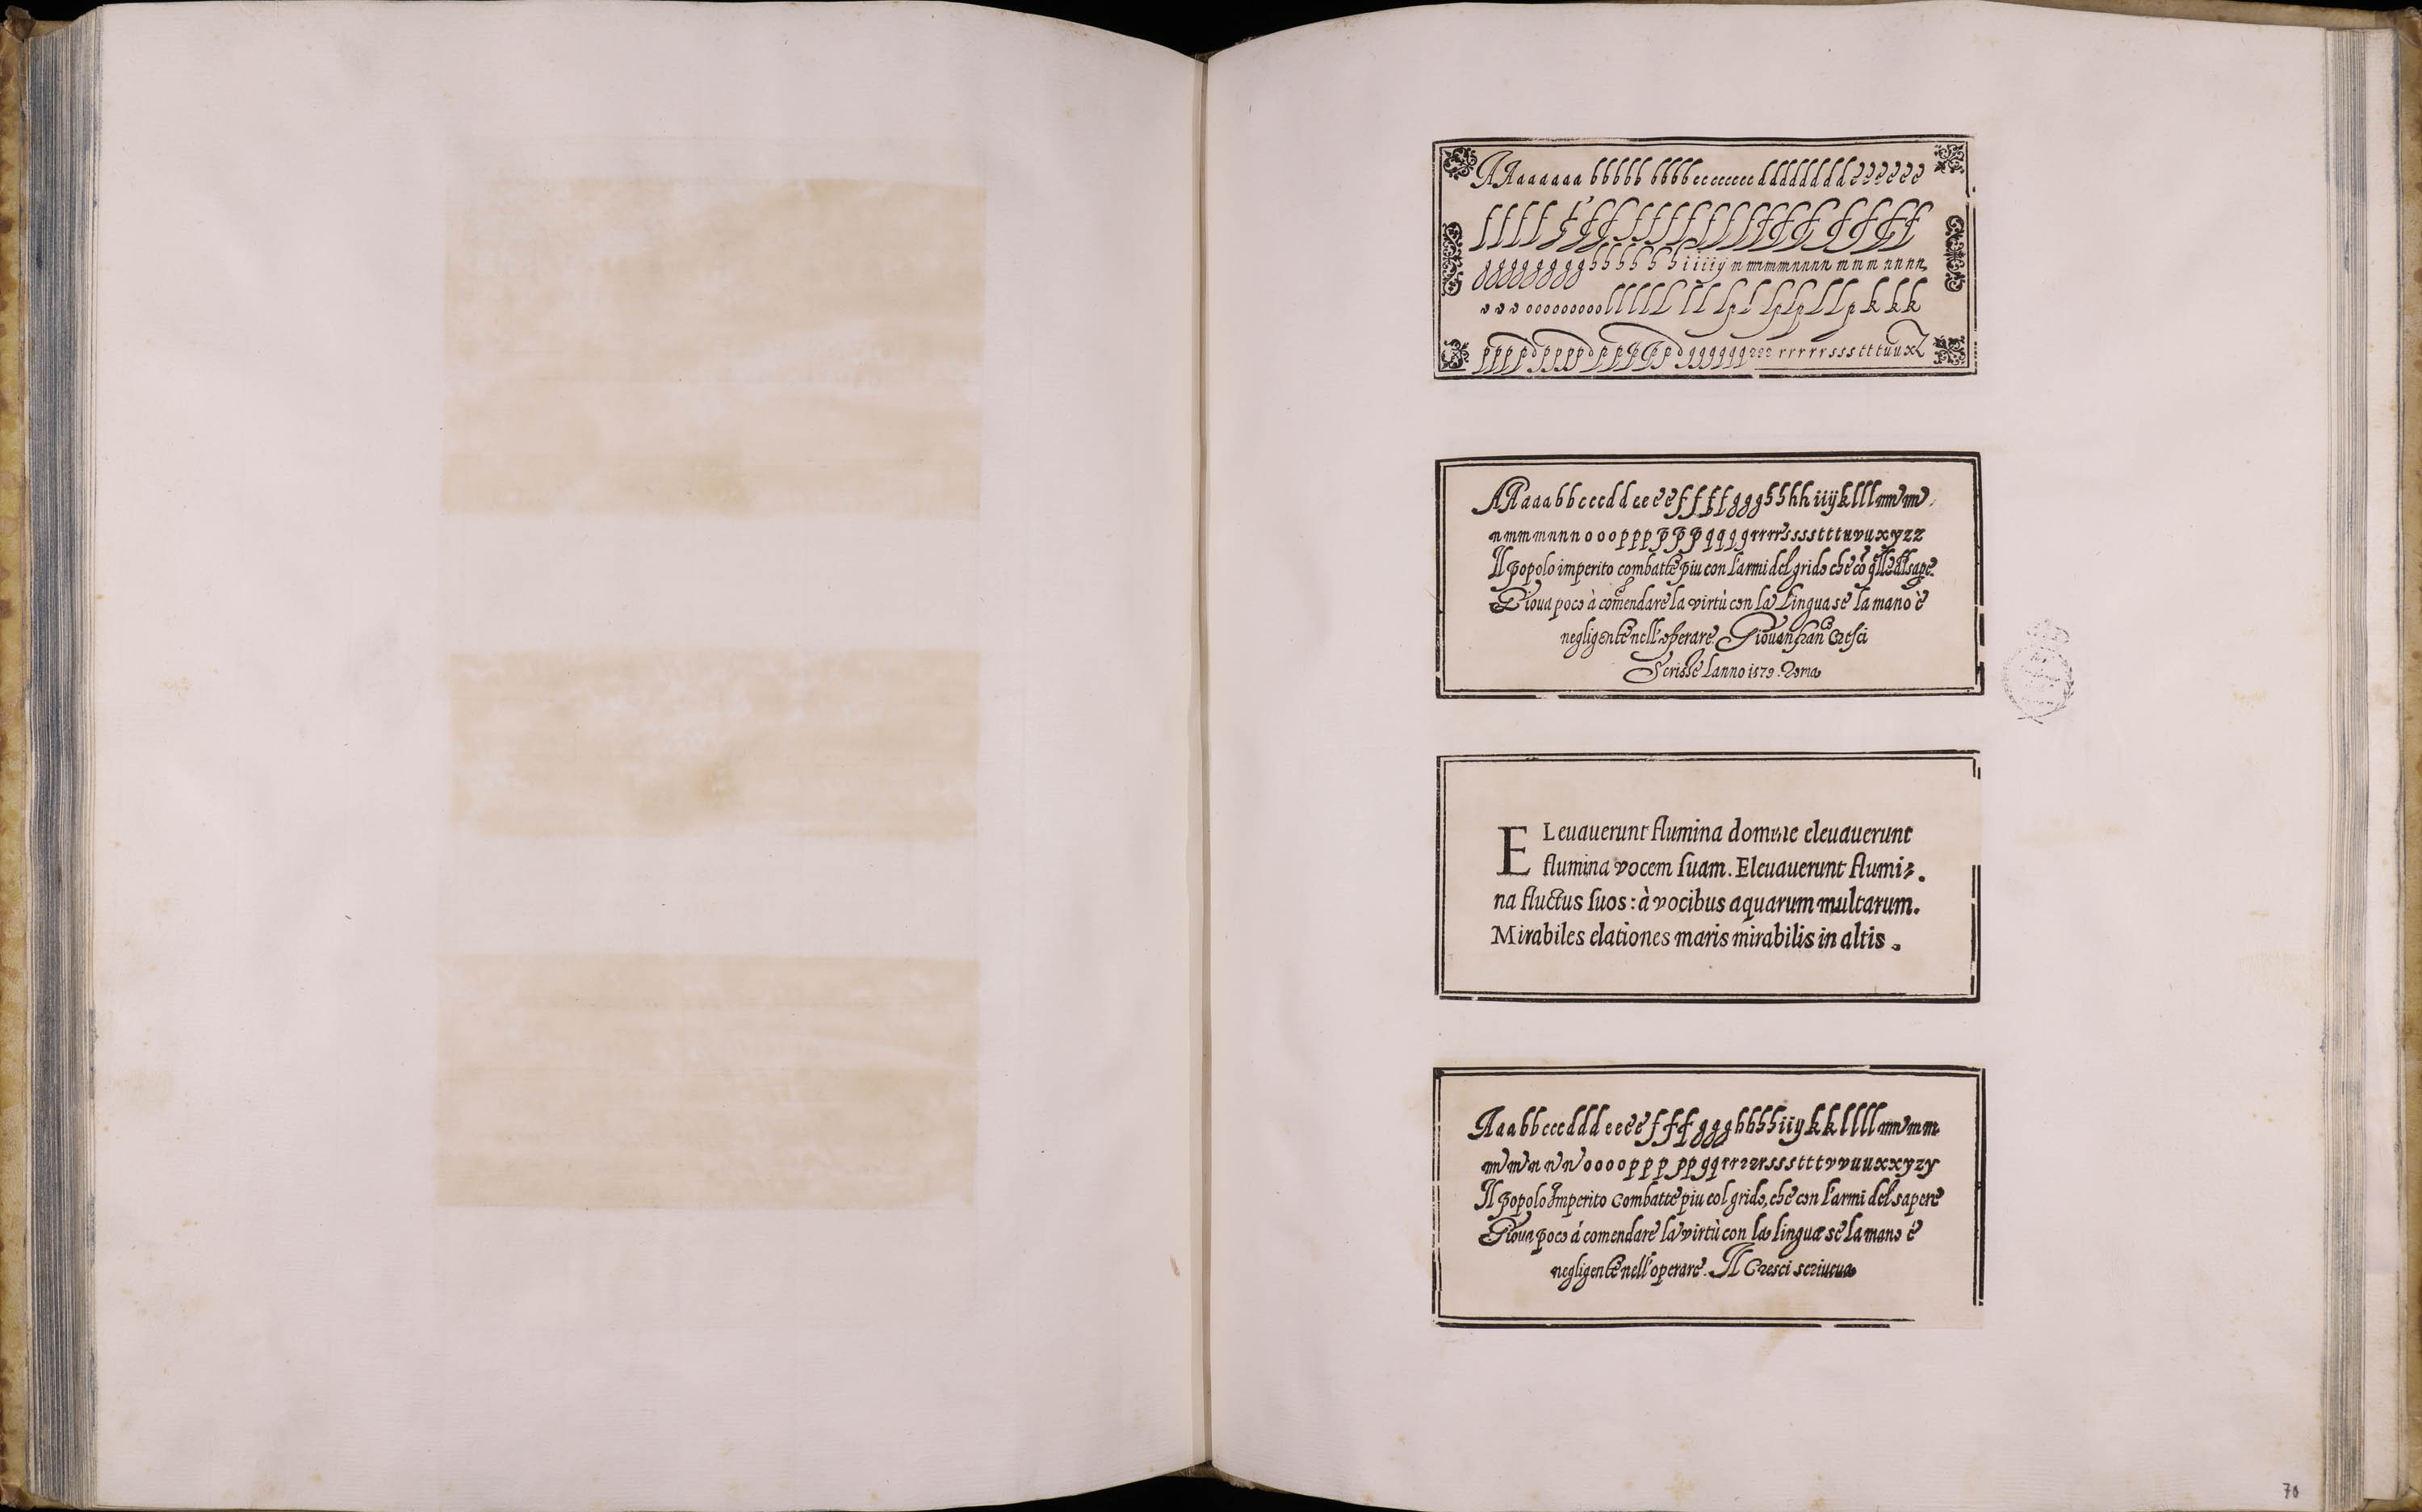 AAaaaaaa bbbbb bbbbccccccccddddddddeeeeeee
AAaaabbccccddeeeeffffggghhhhiiijklllmm
nmmmnnnooopppppp qqqqrrrrrssssstttuvuxyzz
Il popolo imperito combatte piu con l'armi del grido che co qlle dl sape.
Gioua poco à comendare la virtù con la lingua se la mano è
negligente nell'operare. Giouanfran.co Cresci
Scrisse l'anno 1579. Roma
ELeuauerunt flumina domine eleuauerunt
flumina vocem suam. Eleuauerunt flumi-
na fluctus suos: à vocibus aquarum multarum.
Mirabiles elationes maris mirabilis in altis.
Aaabbcccdddeeeeffffggghhhhiijkkllllmmm
mmnnnoooopppppqqrrrrrssstttvvuuxxyzy
Il popolo Imperito Combatte piu col grido, che con l'armi del sapere
Gioua poco á comendare la virtù con la lingua se la mano é
negligente nell'operare. Il Cresci scriueua
70